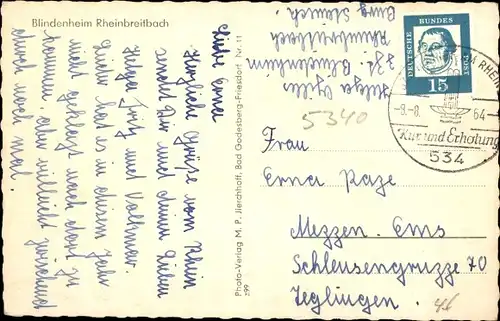 Blindenheim Rheinbreitbach
Liebe Erna
Herzliche Grüße vom Rhein
sendet Dir und deinen Lieben
Helga Fritz und Volkmar.
Leider hat es in diesem Jahr
nicht geklappt nach dort zu
kommen, aber vielleicht zwischend
durch noch mal.
Photo-Verlag M. P. Jierchhoff, Bad Godesberg-Friesdorf Nr. 11
599
Helga
zzt. Blindenheim
Rheinbreitbach
Burg
5340
DEUTSCHE BUNDES POST
15
RHEIN
-9.-8. 64-
Kur und Erholung
534
Frau
Erna Raze
Mezzen. Ems
Schleusengruzze 70
Teglingen.